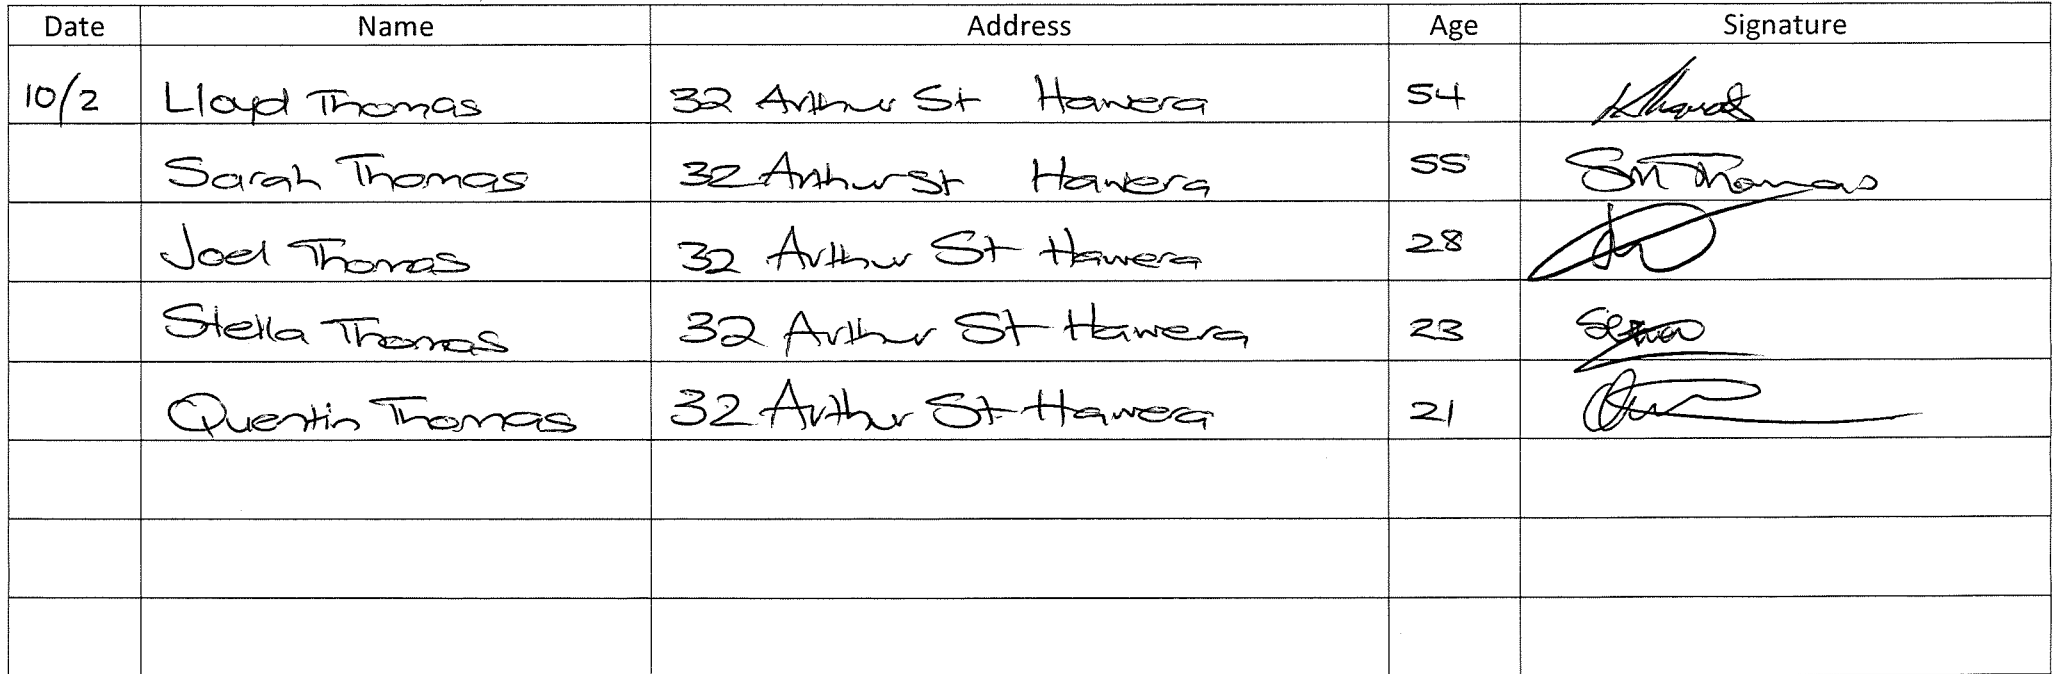 Date Name Address Age Signature
10/2 Lloyd Thomas 32 Arthur St Hawera 54
Sarah Thomas 32 Arthur St Hawera 55 SM Thomas
Joel Thomas 32 Arthur St Hawera 28
Stella Thomas 32 Arthur St Hawera 23
Quentin Thomas 32 Arthur St Hawera 21